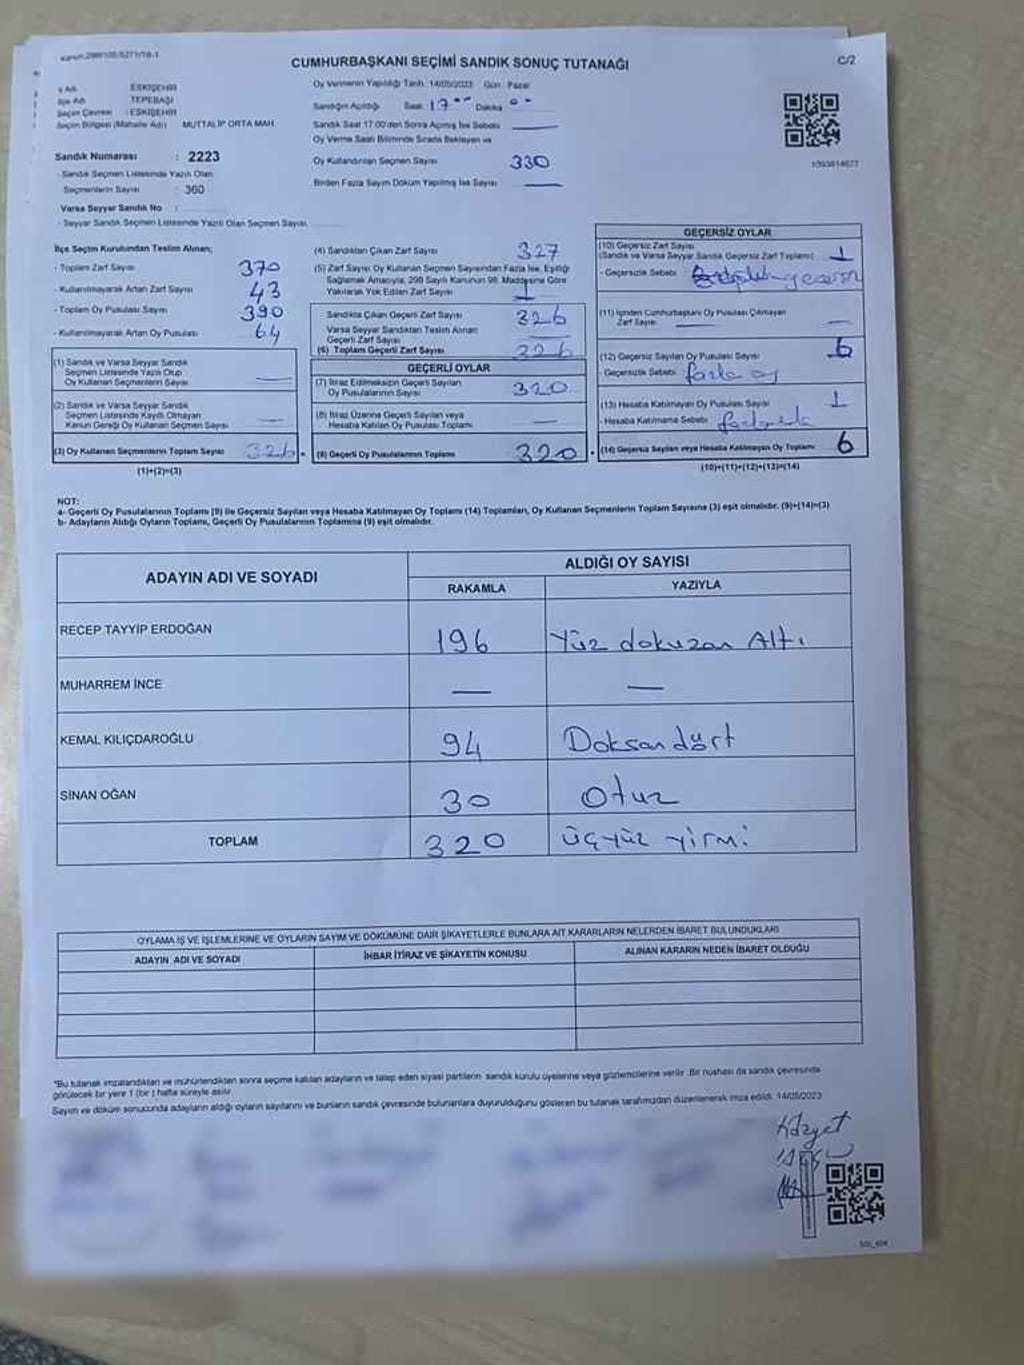 CUMHURBAŞKANI SEÇİMİ SANDIK SONUÇ TUTANAĞI
C/2
Oy Vermenin Yapıldığı Tarih: 14/05/2023 Gün: Pazar
İl Adı : ESKİŞEHİR
İlçe Adı : TEPEBAŞI
Seçim Çevresi : ESKİŞEHİR
Seçim Bölgesi (Mahalle Adı) MUTTALIP ORTA MAH.
Sandığın Açıldığı Saat 17 Dakika
Sandık Saat 17:00'den Sonra Açılmış İse Sebebi
Oy Verme Saati Bitiminde Sırada Bekleyen ve
Oy Kullandırılan Seçmen Sayısı 330
Birden Fazla Sayım Döküm Yapılmış İse Sayısı
Sandık Numarası : 2223
- Sandık Seçmen Listesinde Yazılı Olan
Seçmenlerin Sayısı : 360
Varsa Seyyar Sandık No :
- Seyyar Sandık Seçmen Listesinde Yazılı Olan Seçmen Sayısı
İlçe Seçim Kurulundan Teslim Alınan;
- Toplam Zarf Sayısı 370
- Kullanılmayarak Artan Zarf Sayısı 43
- Toplam Oy Pusulası Sayısı 390
- Kullanılmayarak Artan Oy Pusulası 64
(1) Sandık ve Varsa Seyyar Sandık
Seçmen Listesinde Yazılı Olup
Oy Kullanan Seçmenlerin Sayısı
(2) Sandık ve Varsa Seyyar Sandık
Seçmen Listesinde Kayıtlı Olmayan
Kanun Gereği Oy Kullanan Seçmen Sayısı
(3) Oy Kullanan Seçmenlerin Toplam Sayısı 326
(1)+(2)=(3)
(4) Sandıktan Çıkan Zarf Sayısı 327
(5) Zarf Sayısı Oy Kullanan Seçmen Sayısından Fazla İse, Eşitliği
Sağlamak Amacıyla, 298 Sayılı Kanunun 98. Maddesine Göre
Yakılarak Yok Edilen Zarf Sayısı 1
Sandıkta Çıkan Geçerli Zarf Sayısı 326
Varsa Seyyar Sandıktan Teslim Alınan
Geçerli Zarf Sayısı
(6) Toplam Geçerli Zarf Sayısı 326
GEÇERLİ OYLAR
(7) İtiraz Edilmeksizin Geçerli Sayılan
Oy Pusulalarının Sayısı 320
(8) İtiraz Üzerine Geçerli Sayılan veya
Hesaba Katılan Oy Pusulası Toplamı
(9) Geçerli Oy Pusulalarının Toplamı 320
GEÇERSİZ OYLAR
(10) Geçersiz Zarf Sayısı
(Sandık ve Varsa Seyyar Sandık Geçersiz Zarf Toplamı) 1
- Geçersizlik Sebebi
(11) İçinden Cumhurbaşkanı Oy Pusulası Çıkmayan
Zarf Sayısı
(12) Geçersiz Sayılan Oy Pusulası Sayısı 6
- Geçersizlik Sebebi fazla oy
(13) Hesaba Katılmayan Oy Pusulası Sayısı 1
- Hesaba Katılmama Sebebi
(14) Geçersiz Sayılan veya Hesaba Katılmayan Oy Toplamı 6
(10)+(11)+(12)+(13)=(14)
NOT:
a- Geçerli Oy Pusulalarının Toplamı (9) ile Geçersiz Sayılan veya Hesaba Katılmayan Oy Toplamı (14) Toplamları, Oy Kullanan Seçmenlerin Toplam Sayısına (3) eşit olmalıdır. (9)+(14)=(3)
b- Adayların Aldığı Oyların Toplamı, Geçerli Oy Pusulalarının Toplamına (9) eşit olmalıdır.
ADAYIN ADI VE SOYADI
ALDIĞI OY SAYISI
RAKAMLA YAZIYLA
RECEP TAYYİP ERDOĞAN 196 Yüz dokuzan Altı
MUHARREM İNCE — —
KEMAL KILIÇDAROĞLU 94 Doksan dört
SİNAN OĞAN 30 Otuz
TOPLAM 320 üçyüz yirmi
OYLAMA İŞ VE İŞLEMLERİNE VE OYLARIN SAYIM VE DÖKÜMÜNE DAİR ŞİKAYETLERLE BUNLARA AİT KARARLARIN NELERDEN İBARET BULUNDUKLARI
ADAYIN ADI VE SOYADI İHBAR İTİRAZ VE ŞİKAYETİN KONUSU ALINAN KARARIN NEDEN İBARET OLDUĞU
*Bu tutanak imzalandıktan ve mühürlendikten sonra seçime katılan adayların ve talep eden siyasi partilerin sandık kurulu üyelerine veya gözlemcilerine verilir. Bir nüshası da sandık çevresinde
görülecek bir yere 1 (bir) hafta süreyle asılır.
Sayım ve döküm sonucunda adayların aldığı oyların sayılarını ve bunların sandık çevresinde bulunanlara duyurulduğunu gösteren bu tutanak tarafımızdan düzenlenerek imza edildi. 14/05/2023